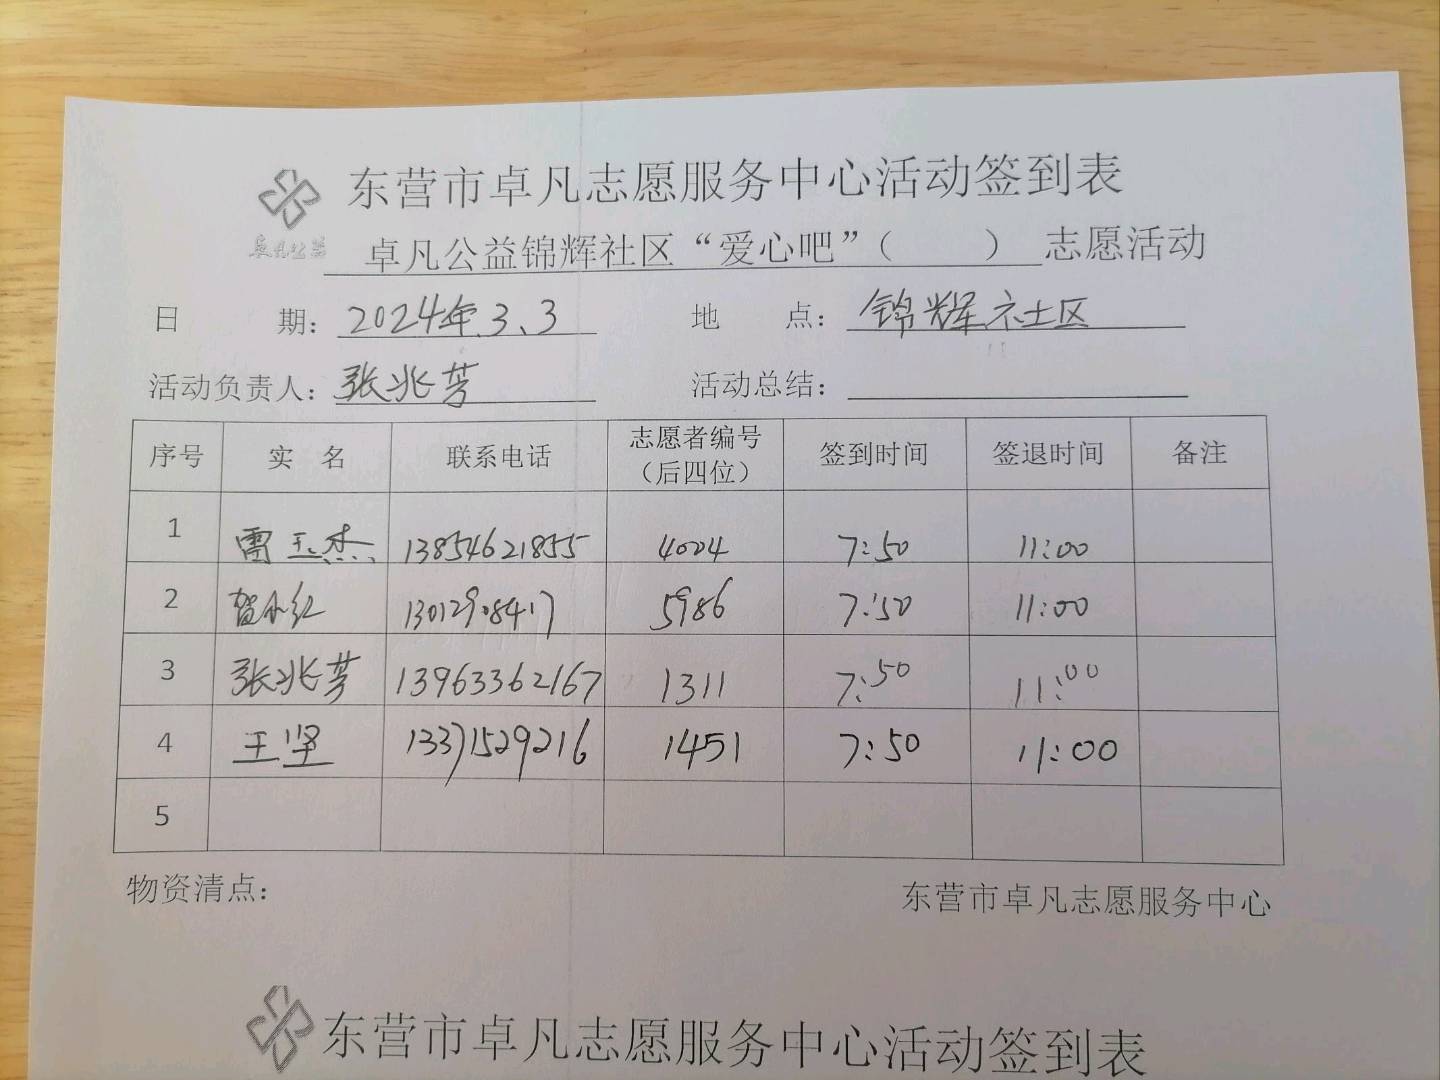 东营市卓凡志愿服务中心活动签到表
卓凡公益
卓凡公益锦辉社区“爱心吧”（ ）志愿活动
日 期：2024年.3、3 地 点：锦辉社区
活动负责人：张兆芳 活动总结：
序号 实 名 联系电话 志愿者编号（后四位） 签到时间 签退时间 备注
1 雷玉杰 13854621855 4004 7:50 11:00
2 贺小红 13012908417 5986 7:50 11:00
3 张兆芳 13963362167 1311 7:50 11:00
4 王坚 13371529216 1451 7:50 11:00
5
物资清点： 东营市卓凡志愿服务中心
东营市卓凡志愿服务中心活动签到表